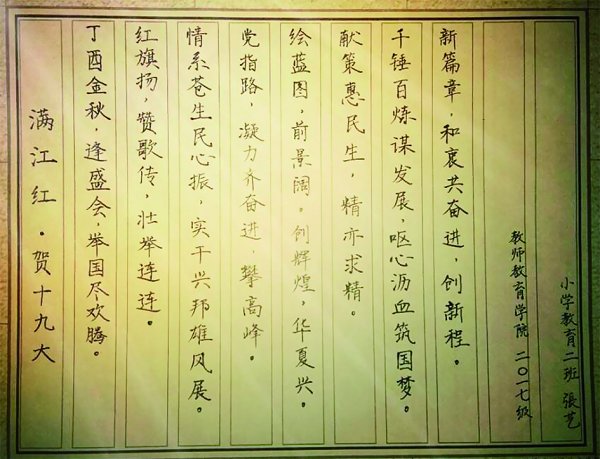 满江红·贺十九大
丁酉金秋，逢盛会，举国尽欢腾。
红旗扬，赞歌传，壮举连连。
情系苍生民心振，实干兴邦雄风展。
党指路，凝力齐奋进，攀高峰。
绘蓝图，前景阔。创辉煌，华夏兴。
献策惠民生，精亦求精。
千锤百炼谋发展，呕心沥血筑国梦。
新篇章，和衷共奋进，创新程。
教师教育学院 二〇一七级
小学教育二班 張艺